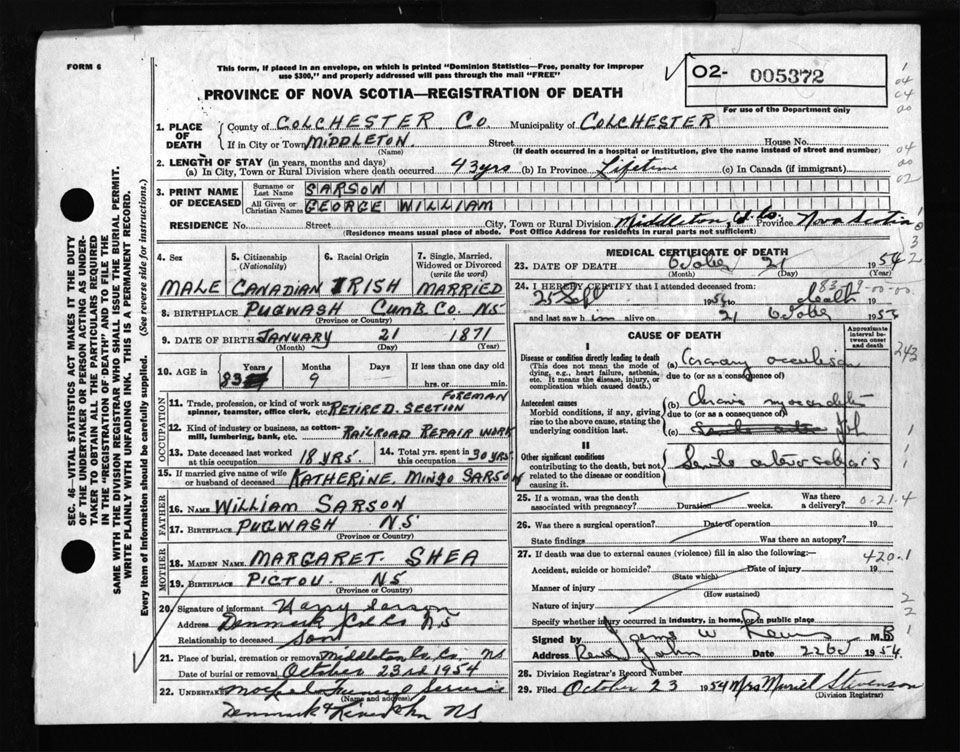 FORM 6
This form, if placed in an envelope, on which is printed "Dominion Statistics—Free, penalty for improper
use $300," and properly addressed will pass through the mail "FREE"
PROVINCE OF NOVA SCOTIA—REGISTRATION OF DEATH
02- 005372
For use of the Department only
1. PLACE OF DEATH
County of COLCHESTER Co Municipality of COLCHESTER
If in City or Town MIDDLETON. Street House No.
(Name) (If death occurred in a hospital or institution, give the name instead of street and number)
2. LENGTH OF STAY (in years, months and days)
(a) In City, Town or Rural Division where death occurred 43 yrs (b) In Province Lifetime (c) In Canada (if immigrant)
3. PRINT NAME OF DECEASED
Surname or Last Name SARSON
All Given or Christian Names GEORGE WILLIAM
RESIDENCE No. Street City, Town or Rural Division Middleton, Col. Co. Province Nova Scotia
(Residence means usual place of abode. Post Office Address for residents in rural parts not sufficient)
4. Sex 5. Citizenship (Nationality) 6. Racial Origin 7. Single, Married, Widowed or Divorced (write the word)
MALE CANADIAN IRISH MARRIED
8. BIRTHPLACE PUGWASH CUMB. CO. NS
(Province or Country)
9. DATE OF BIRTH JANUARY 21 1871
(Month) (Day) (Year)
10. AGE in Years Months Days If less than one day old
83 9 hrs. or min.
11. Trade, profession, or kind of work as spinner, teamster, office clerk, etc. RETIRED. SECTION FOREMAN
12. Kind of industry or business, as cotton-mill, lumbering, bank, etc. RAILROAD REPAIR WORK
13. Date deceased last worked at this occupation 18 YRS. 14. Total yrs. spent in this occupation 30 YRS.
OCCUPATION
15. If married give name of wife or husband of deceased KATHERINE. MINGO SARSON
FATHER
16. NAME WILLIAM SARSON
17. BIRTHPLACE PUGWASH NS
(Province or Country)
MOTHER
18. MAIDEN NAME MARGARET. SHEA
19. BIRTHPLACE PICTOU NS
(Province or Country)
20. Signature of informant Harry Sarson
Address Denmark Col Co NS
Relationship to deceased Son
21. Place of burial, cremation or removal Middleton Co. Co. NS
Date of burial or removal October 23rd 1954
22. UNDERTAKER Funeral Service
(Name and address)
Denmark NS
SEC. 46—VITAL STATISTICS ACT MAKES IT THE DUTY
OF THE UNDERTAKER OR PERSON ACTING AS UNDER-
TAKER TO OBTAIN ALL THE PARTICULARS REQUIRED
IN THE "REGISTRATION OF DEATH" AND TO FILE THE
SAME WITH THE DIVISION REGISTRAR WHO SHALL ISSUE THE BURIAL PERMIT.
WRITE PLAINLY WITH UNFADING INK. THIS IS A PERMANENT RECORD.
Every item of information should be carefully supplied. (See reverse side for instructions.)
MEDICAL CERTIFICATE OF DEATH
23. DATE OF DEATH October 21 1954
(Month) (Day) (Year)
24. I HEREBY CERTIFY that I attended deceased from:
83-9-00-00
25 Sept 1954 to death 19
and last saw him alive on 21 October 1954
CAUSE OF DEATH
Approximate interval between onset and death
I
Disease or condition directly leading to death
(This does not mean the mode of dying, e.g., heart failure, asthenia, etc. It means the disease, injury, or complication which caused death.)
(a) Coronary occlusion
due to (or as a consequence of)
Antecedent causes
Morbid conditions, if any, giving rise to the above cause, stating the underlying condition last.
(b) Chronic myocarditis
due to (or as a consequence of)
(c)
II
Other significant conditions
contributing to the death, but not related to the disease or condition causing it.
Senile arteriosclerosis
25. If a woman, was the death associated with pregnancy? Duration weeks. Was there a delivery?
26. Was there a surgical operation? Date of operation 19
State findings Was there an autopsy?
27. If death was due to external causes (violence) fill in also the following:—
Accident, suicide or homicide? Date of injury 19
(State which)
Manner of injury
(How sustained)
Nature of injury
Specify whether injury occurred in industry, in home, or in public place
Signed by M.D.
Address River John Date 22 Oct 1954.
28. Division Registrar's Record Number
29. Filed October 23 1954 Mrs Muriel Stevenson
(Division Registrar)
243
0-21.4
420.1
2
2